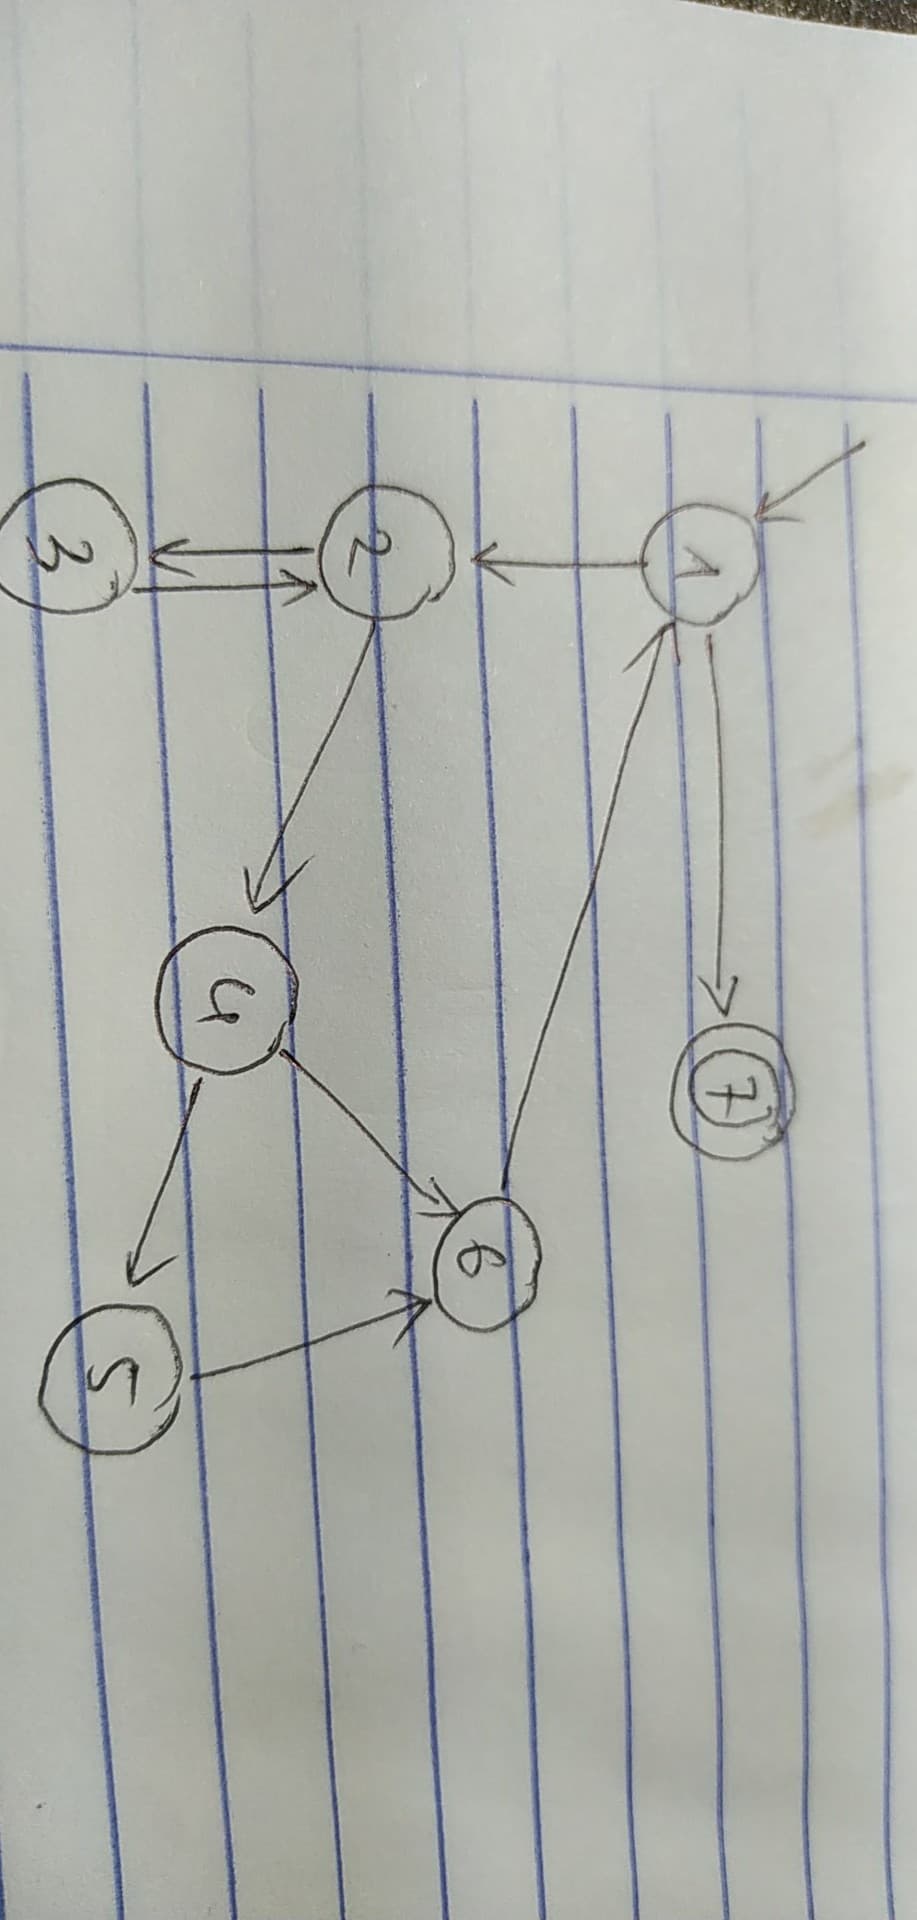 1
7
6
2
4
5
3